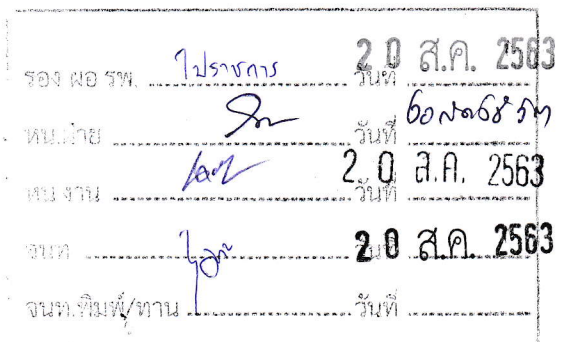 รอง ผอ รพ. ไปราชการ วันที่ 20 ส.ค. 2563
หน.ฝ่าย วันที่
หน งาน วันที่ 20 ส.ค. 2563
จนท วันที่ 20 ส.ค. 2563
จนท.พิมพ์/ทาน วันที่